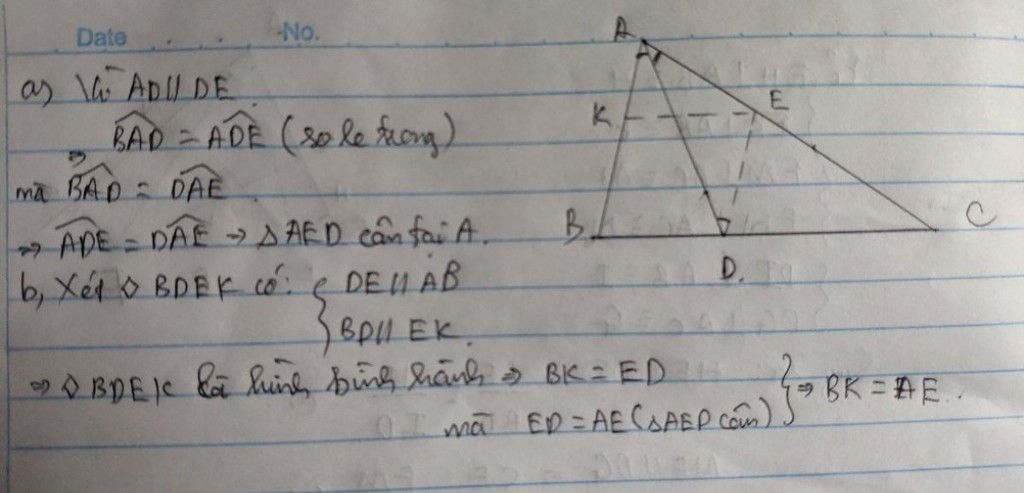 Date No.
a) Vì AD // DE.
⇒ BAD = ADE (so le trong)
mà BAD = DAE.
⇒ ADE = DAE → △AED cân tại A.
b, Xét ◇ BDEK có: { DE // AB
BD // EK.
⇒ ◇ BDEK là hình bình hành ⇒ BK = ED
mà ED = AE (△AED cân) } ⇒ BK = AE.
A
K
E
B
C
D.